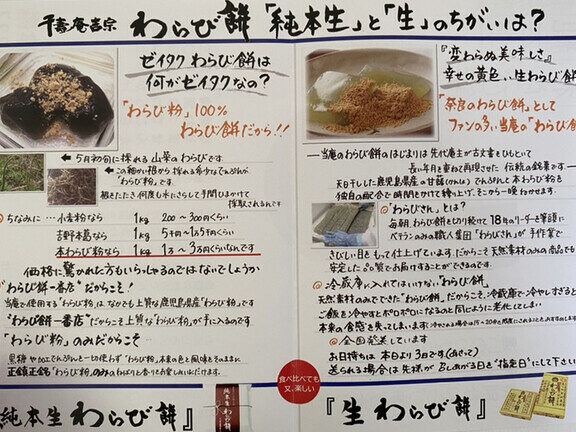 千壽庵吉宗 わらび餅「純本生」と「生」のちがいは?
ゼイタクわらび餅は
何がゼイタクなの?
「わらび粉」100%
わらび餅だから!!
↑5月初旬に採れる山菜のわらびです。
この細かい根から採れる希少なでんぷんが
「わらび粉」です。
根をたたき、何度も水にさらして手間ひまかけて
採取されるんです
ちなみに…小麦粉なら 1kg 200〜300円くらい
吉野本葛なら 1kg 5千〜1万5千円くらい
本わらび粉なら 1kg 1万〜3万円くらいなんです
価格に驚かれた方もいらっしゃるのではないでしょうか
"わらび餅一番店"だからこそ!
当庵で使用する「わらび粉」は、なかでも上質な鹿児島県産"わらび粉"です
"わらび餅一番店"だからこそ上質な「わらび粉」が手に入るのです
「わらび粉」のみだからこそ
黒糖や加工でんぷんを一切使わず"わらび粉"本来の色と風味をそのままに
正真正銘"わらび粉"のみのねばりと香りをお楽しみいただけます。
純本生わらび餅』
『変わらぬ美味しさ』
幸せの黄色い生わらび餅
「奈良のわらび餅」として
ファンの多い、当庵の「わらび餅
当庵のわらび餅のはじまりは先代庵主が古文書をひもといて
長い年月を重ね再現させた、伝統の銘菓です
天日干しした鹿児島県産の甘藷(かんしょ)でんぷんと本わらび粉を
独自の配合で時間をかけて練り上げ、そこから一晩ねかせます。
「わらびさん」とは?
毎朝、わらび餅を切り続けて18年のリーダーを筆頭に
ベテランのみの職人集団「わらびさん」が手作業で
きびしい目をもって仕上げています。だからこそ天然素材のみの商品でも
安定した品質でお届けすることができるのです。
冷蔵庫に入れてはいけない、「わらび餅」
天然素材のみでできた"わらび餅"だからこそ、冷蔵庫で冷やしすぎると
ご飯を冷やすとボロボロになるのと同じように老化してしまい
本来の食感を失ってしまいます
全国発送しています
お日持ちは本日より3日です
送られる場合は先様が
"指定日"にして下さい
食べ比べても
又、楽しい
『生わらび餅』
純本生
わらび餅